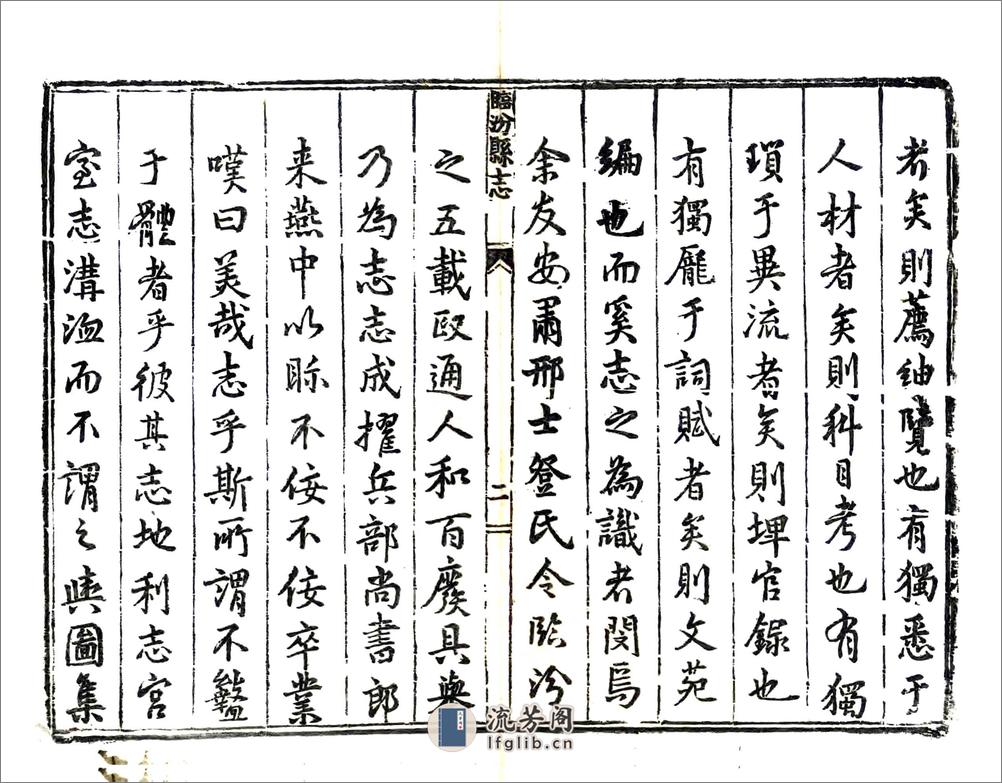 者矣則薦紳覽也有獨悉于
人材者矣則科目考也有獨
瑣于異流者矣則埤官錄也
有獨龐于詞賦者矣則文苑
編也而奚志之為識者閔焉
余友安肅邢士登氏令臨汾
臨汾縣志
二
之五載政通人和百廢具興
乃為志志成擢兵部尚書郎
来燕中以眎不佞不佞卒業
嘆曰美哉志乎斯所謂不盭
于體者乎彼其志地利志宮
室志溝洫而不謂之輿圖集
流芳阁
lfglib.cn